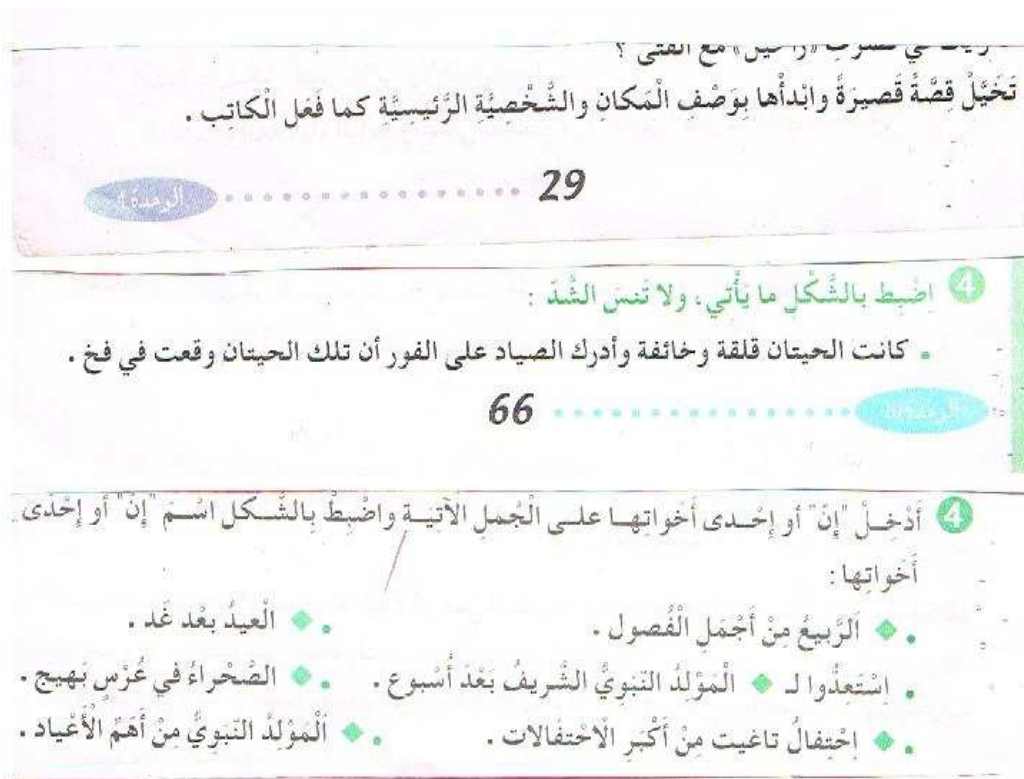 مع الفتى ؟
تَخَيَّلْ قصَّةً قَصيرَةً وابْدأْها بِوَصْفِ الْمَكانِ والشَّخْصِيَّة الرَّئيسِيَّة كما فَعَل الْكاتب .
29 الوحدة 4
4 اِضْبِط بالشَّكْلِ ما يَأْتي، ولا تَنسَ الشَّدّ :
. كانت الحيتان قلقة وخائفة وأدرك الصياد على الفور أن تلك الحيتان وقعت في فخ .
66
4 أَدْخِلْ "إِنّ" أو إِحْدى أَخواتِها على الْجُملِ الآتِيَة واضْبِطْ بِالشَّكل اسْمَ "إِنّ" أو إِحْدَى
أَخواتِها :
. ◆ اَلرَّبيعُ مِنْ أَجْمَلِ الْفُصول . . ◆ الْعيدُ بعْد غَد .
. اِسْتَعِدُّوا لـ ◆ الْمَوْلِدُ النّبَوِيُّ الشَّريفُ بَعْدَ أُسْبوع . . ◆ الصَّحْراءُ في عُرْسٍ بَهيج .
. ◆ اِحْتِفالُ تاغيت مِنْ أَكْبَرِ الاحْتفالات . . ◆ اَلْمَوْلِدُ النّبَوِيُّ مِنْ أَهَمِّ الأَعْياد .